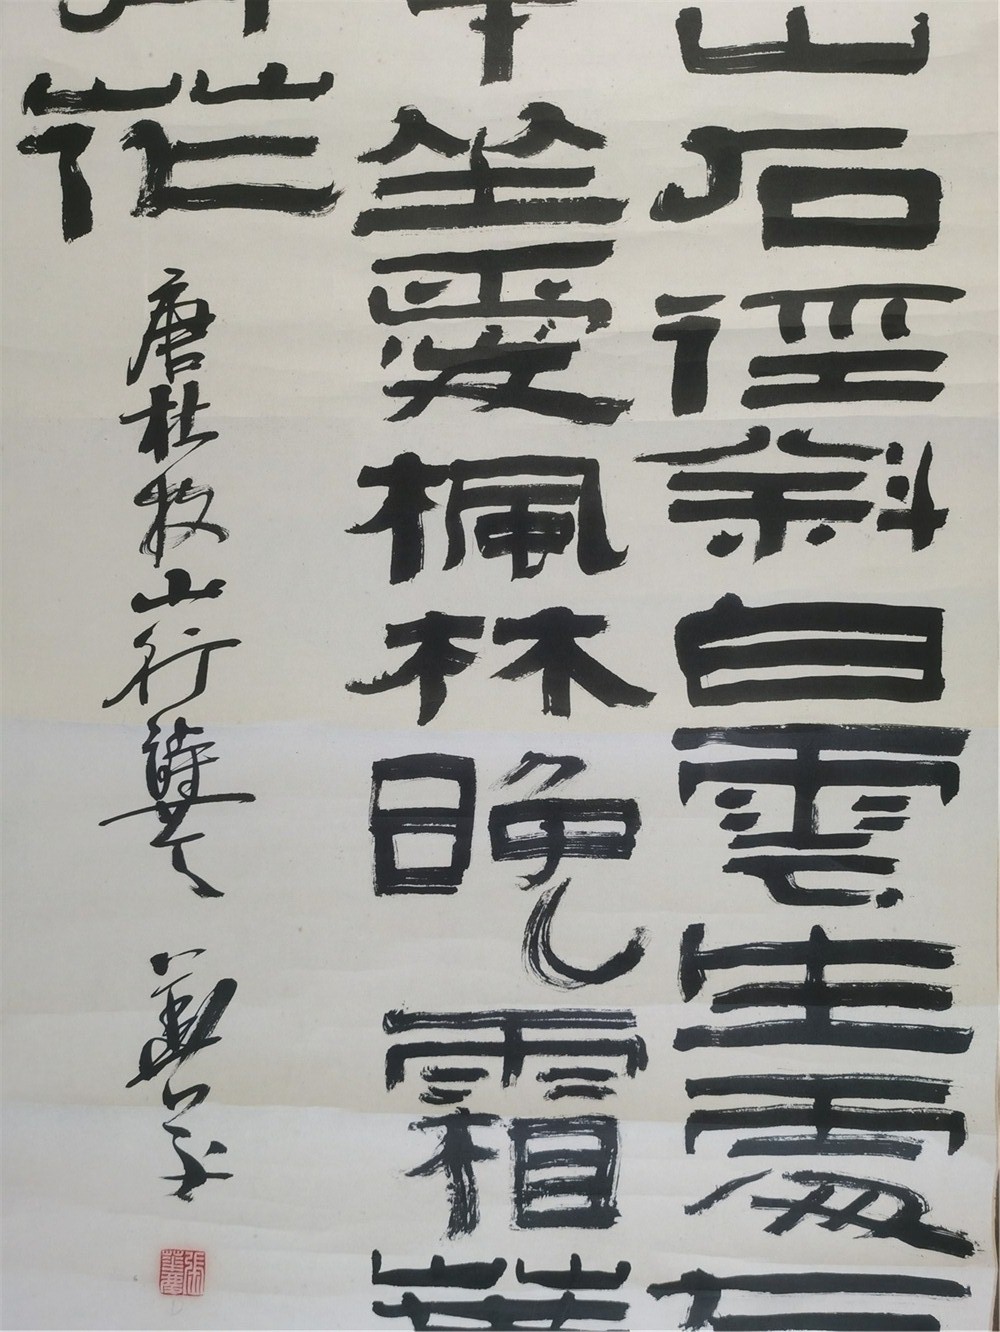 山石徑斜白雲生處有
車坐愛楓林晚霜葉
月花
唐杜牧山行詩